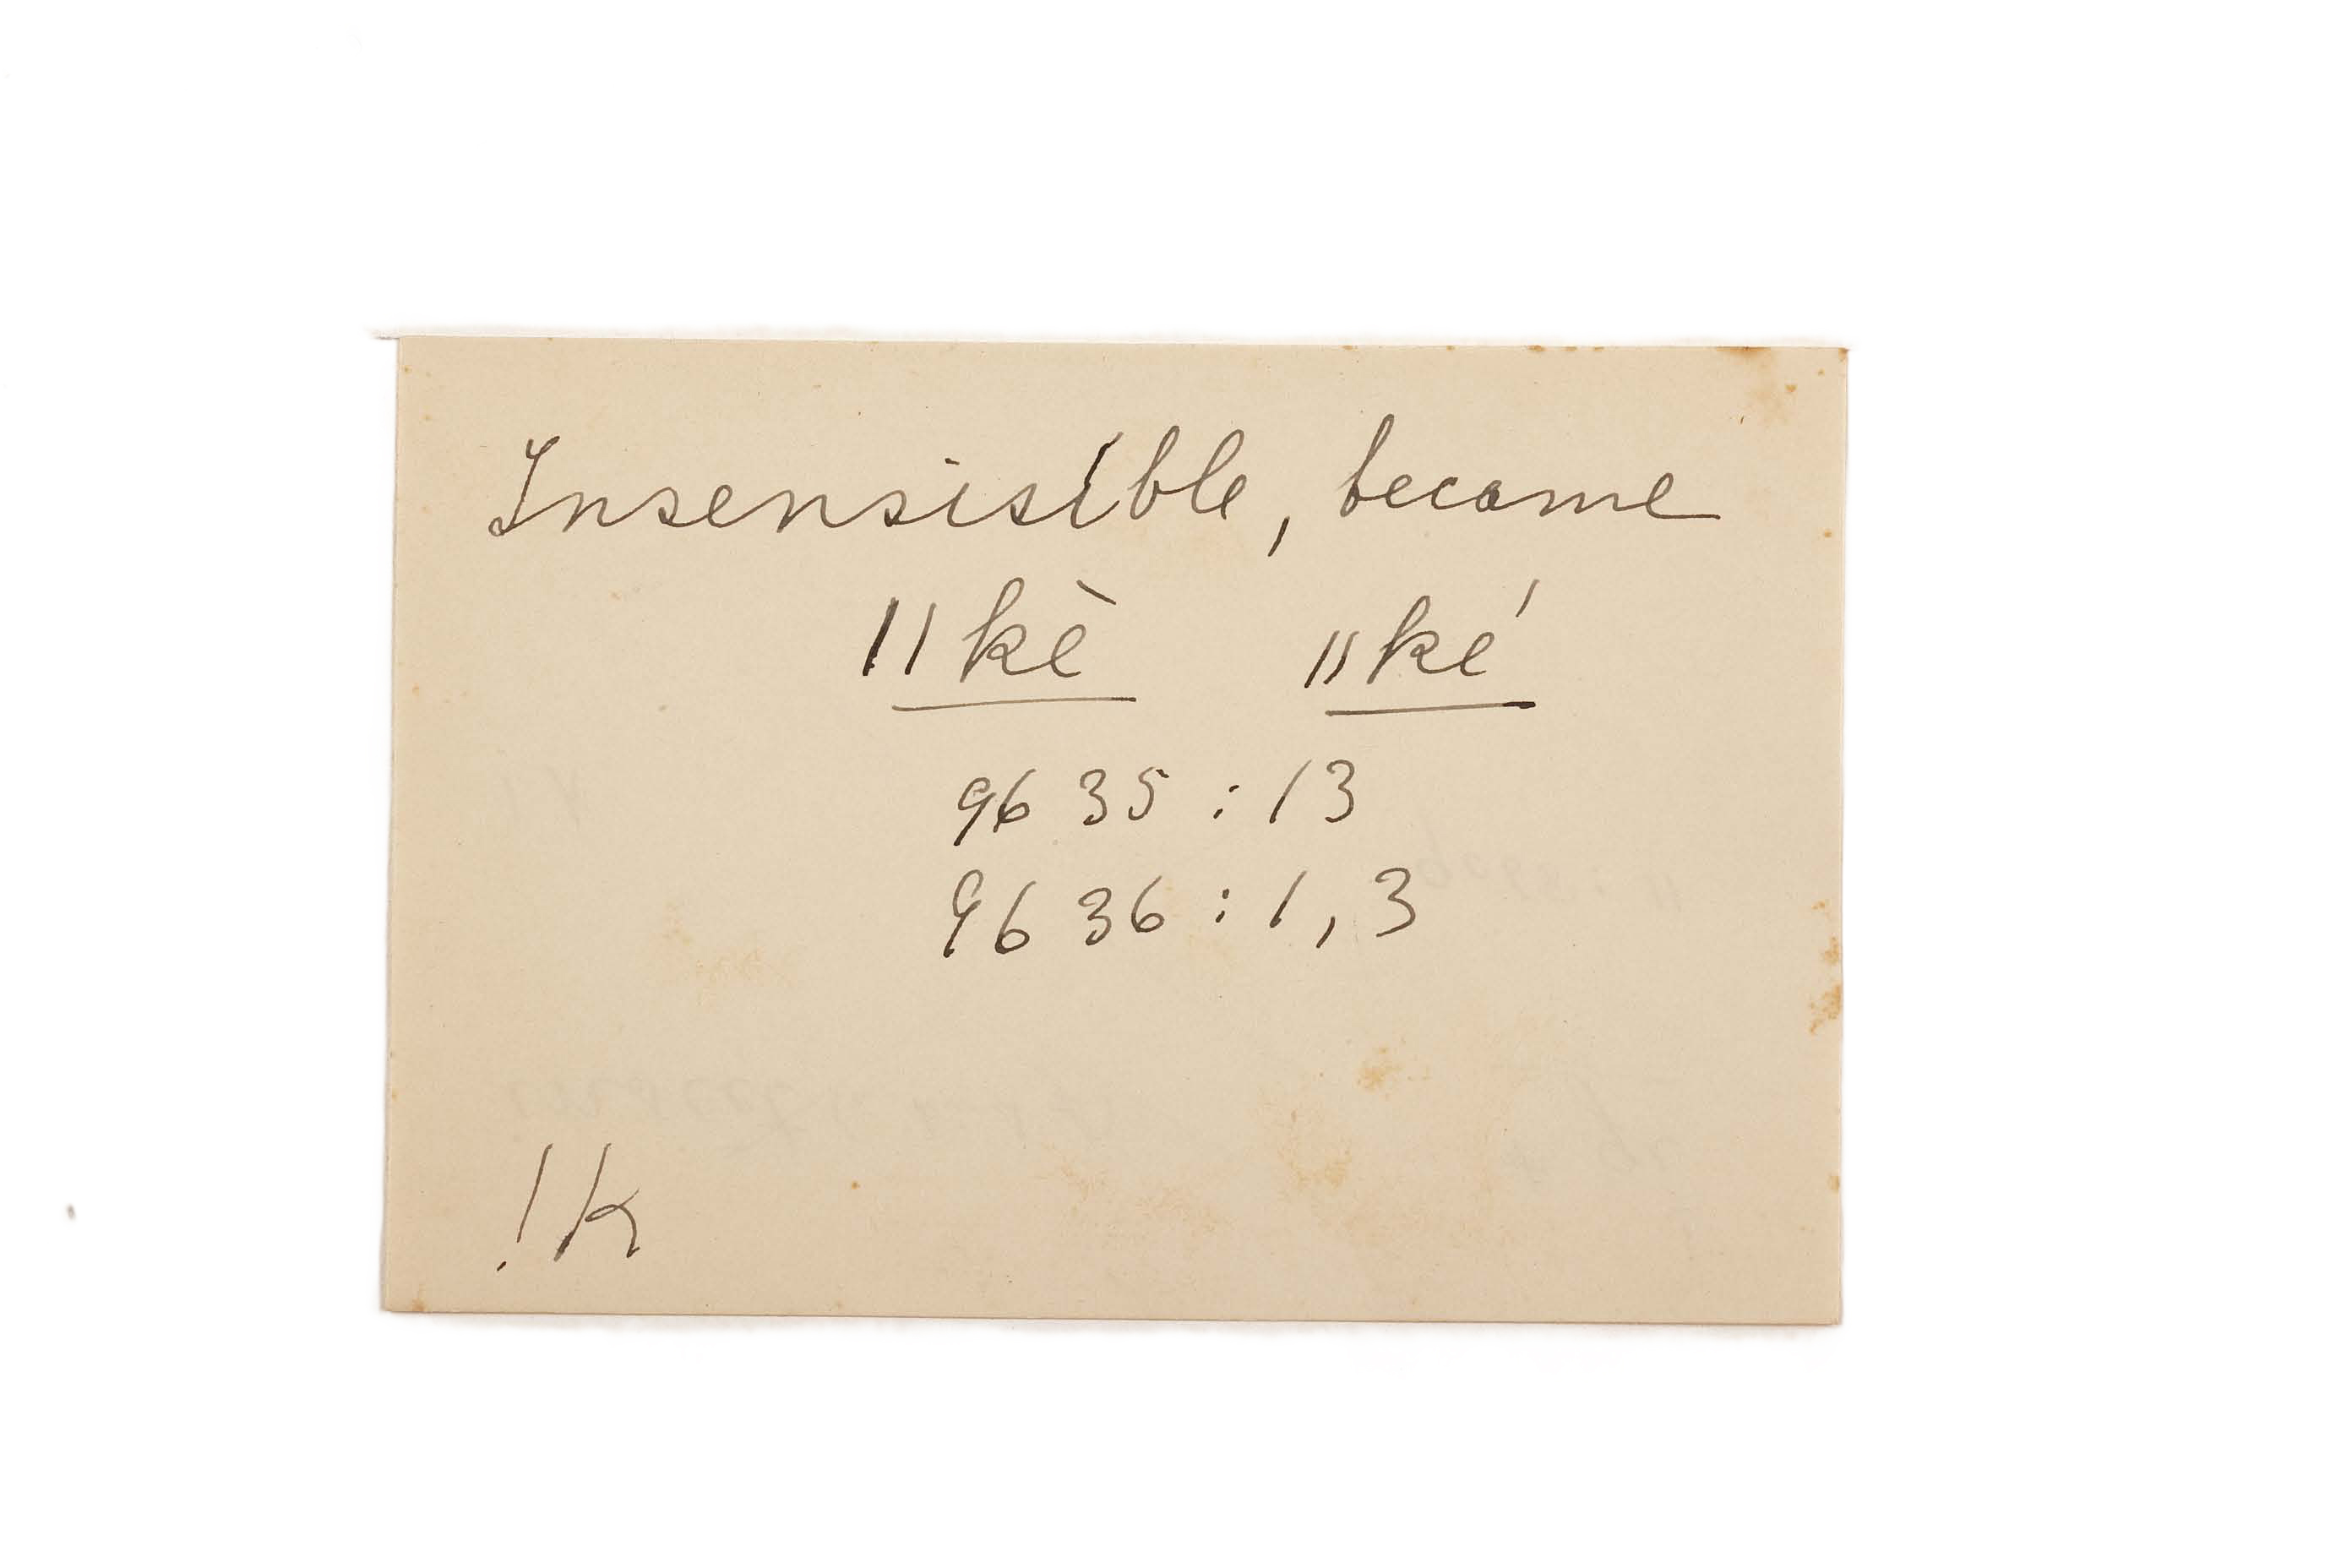 Insensisible, became
||kè ||ké
9635 : 13
9636 : 1, 3
!K